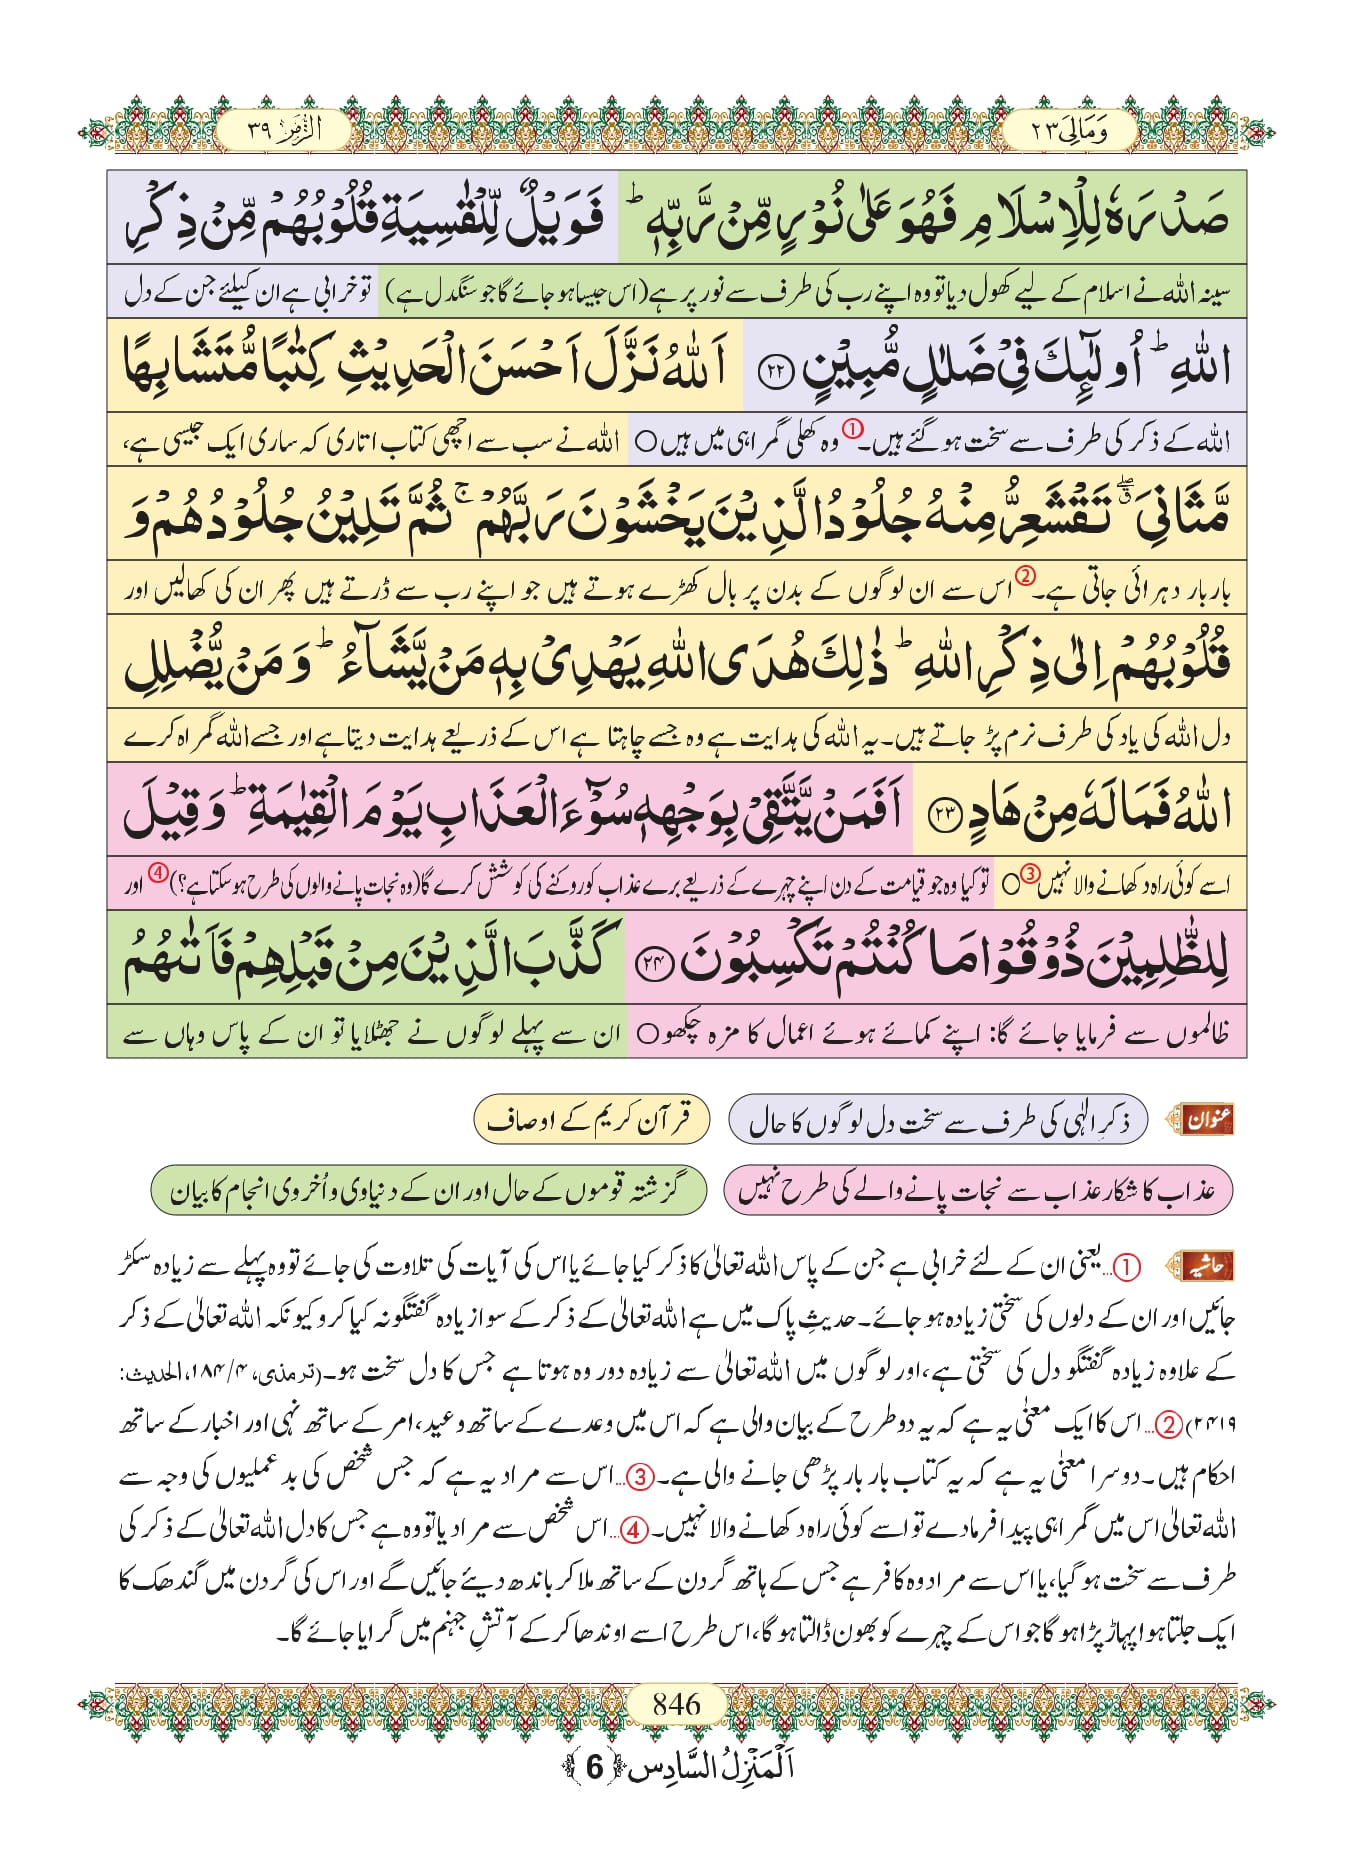 وَمَالِیَ ۲۳
الزُّمَر ۳۹
صَدْرَهٗ لِلْاِسْلَامِ فَهُوَ عَلٰی نُوْرٍ مِّنْ رَّبِّهٖ ؕ فَوَیْلٌ لِّلْقٰسِیَةِ قُلُوْبُهُمْ مِّنْ ذِكْرِ
سینہ اللہ نے اسلام کے لیے کھول دیا تو وہ اپنے رب کی طرف سے نور پر ہے (اس جیسا ہو جائے گا جو سنگدل ہے) تو خرابی ہے ان کیلئے جن کے دل
اللّٰهِ ؕ اُولٰٓىِٕكَ فِیْ ضَلٰلٍ مُّبِیْنٍ ﴿۲۲﴾ اَللّٰهُ نَزَّلَ اَحْسَنَ الْحَدِیْثِ كِتٰبًا مُّتَشَابِهًا
اللہ کے ذکر کی طرف سے سخت ہو گئے ہیں۔ ① وہ کھلی گمراہی میں ہیں ○ اللہ نے سب سے اچھی کتاب اتاری کہ ساری ایک جیسی ہے،
مَّثَانِیَ ۖۗ تَقْشَعِرُّ مِنْهُ جُلُوْدُ الَّذِیْنَ یَخْشَوْنَ رَبَّهُمْ ۚ ثُمَّ تَلِیْنُ جُلُوْدُهُمْ وَ
بار بار دہرائی جاتی ہے۔ ② اس سے ان لوگوں کے بدن پر بال کھڑے ہوتے ہیں جو اپنے رب سے ڈرتے ہیں پھر ان کی کھالیں اور
قُلُوْبُهُمْ اِلٰی ذِكْرِ اللّٰهِ ؕ ذٰلِكَ هُدَی اللّٰهِ یَهْدِیْ بِهٖ مَنْ یَّشَآءُ ؕ وَ مَنْ یُّضْلِلِ
دل اللہ کی یاد کی طرف نرم پڑ جاتے ہیں۔ یہ اللہ کی ہدایت ہے وہ جسے چاہتا ہے اس کے ذریعے ہدایت دیتا ہے اور جسے اللہ گمراہ کرے
اللّٰهُ فَمَا لَهٗ مِنْ هَادٍ ﴿۲۳﴾ اَفَمَنْ یَّتَّقِیْ بِوَجْهِهٖ سُوْٓءَ الْعَذَابِ یَوْمَ الْقِیٰمَةِ ؕ وَ قِیْلَ
اسے کوئی راہ دکھانے والا نہیں ③ ○ تو کیا وہ جو قیامت کے دن اپنے چہرے کے ذریعے برے عذاب کو روکنے کی کوشش کرے گا (وہ نجات پانے والوں کی طرح ہو سکتا ہے؟) ④ اور
لِلظّٰلِمِیْنَ ذُوْقُوْا مَا كُنْتُمْ تَكْسِبُوْنَ ﴿۲۴﴾ كَذَّبَ الَّذِیْنَ مِنْ قَبْلِهِمْ فَاَتٰىهُمُ
ظالموں سے فرمایا جائے گا: اپنے کمائے ہوئے اعمال کا مزہ چکھو ○ ان سے پہلے لوگوں نے جھٹلایا تو ان کے پاس وہاں سے
عنوان ذکرِ الٰہی کی طرف سے سخت دل لوگوں کا حال قرآن کریم کے اوصاف
عذاب کا شکار عذاب سے نجات پانے والے کی طرح نہیں گزشتہ قوموں کے حال اور ان کے دنیاوی و اُخروی انجام کا بیان
حاشیہ ①... یعنی ان کے لئے خرابی ہے جن کے پاس اللہ تعالیٰ کا ذکر کیا جائے یا اس کی آیات کی تلاوت کی جائے تو وہ پہلے سے زیادہ سکڑ
جائیں اور ان کے دلوں کی سختی زیادہ ہو جائے۔ حدیثِ پاک میں ہے اللہ تعالیٰ کے ذکر کے سوا زیادہ گفتگو نہ کیا کرو کیونکہ اللہ تعالیٰ کے ذکر
کے علاوہ زیادہ گفتگو دل کی سختی ہے، اور لوگوں میں اللہ تعالیٰ سے زیادہ دور وہ ہوتا ہے جس کا دل سخت ہو۔ (ترمذی، ۴/۱۸۴، الحدیث:
۲۴۱۹) ②... اس کا ایک معنٰی یہ ہے کہ یہ دو طرح کے بیان والی ہے کہ اس میں وعدے کے ساتھ وعید، امر کے ساتھ نہی اور اخبار کے ساتھ
احکام ہیں۔ دوسرا معنٰی یہ ہے کہ یہ کتاب بار بار پڑھی جانے والی ہے۔ ③... اس سے مراد یہ ہے کہ جس شخص کی بد عملیوں کی وجہ سے
اللہ تعالیٰ اس میں گمراہی پیدا فرما دے تو اسے کوئی راہ دکھانے والا نہیں۔ ④... اس شخص سے مراد یا تو وہ ہے جس کا دل اللہ تعالیٰ کے ذکر کی
طرف سے سخت ہو گیا، یا اس سے مراد وہ کافر ہے جس کے ہاتھ گردن کے ساتھ ملا کر باندھ دیئے جائیں گے اور اس کی گردن میں گندھک کا
ایک جلتا ہوا پہاڑ پڑا ہو گا جو اس کے چہرے کو بھون ڈالتا ہو گا، اس طرح اسے اوندھا کر کے آتشِ جہنم میں گرایا جائے گا۔
846
اَلْمَنْزِلُ السَّادِس ﴿6﴾